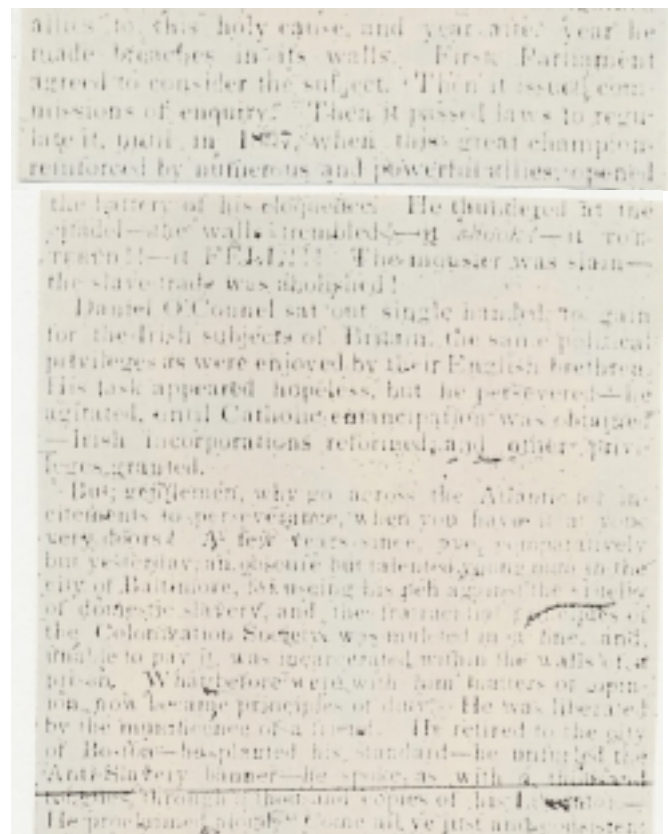 allies to this holy cause, and year after year he
made breaches in its walls. First Parliament
agreed to consider the subject. Then it issued com-
missions of enquiry. Then it passed laws to regu-
late it, until in 1807, when this great champion
reinforced by numerous and powerful allies, opened
the battery of his eloquence. He thundered at the
citadel—the wall trembled!—it shook!—it
—it FELL!!! The monster was slain—
the slave trade was abolished!
Daniel O'Connel sat out single handed to gain
for the Irish subjects of Britain, the same political
privileges as were enjoyed by their English brethren.
His task appeared hopeless, but he persevered—he
agitated, until Catholic emancipation was obtained
—Irish incorporations reformed, and other privi-
leges granted.
But, gentlemen, why go across the Atlantic for in-
citements to perseverance, when you have it at your
very doors? A few years since, comparatively
but yesterday, an obscure but talented young man in the
city of Baltimore, for using his pen against the
of domestic slavery, and the principles of
the Colonization Society, was mulcted in a fine, and,
unable to pay it, was incarcerated within the walls of a
prison. What before were with him matters of opin-
ion, now became principles of duty. He was liberated
by the munificence of a friend. He retired to the city
of Boston—has planted his standard—he unfurled the
Anti-Slavery banner—he spoke, as with a thousand
tongues, through a thousand copies of his Liberator—
He proclaimed aloud, "Come all ye just and consistent